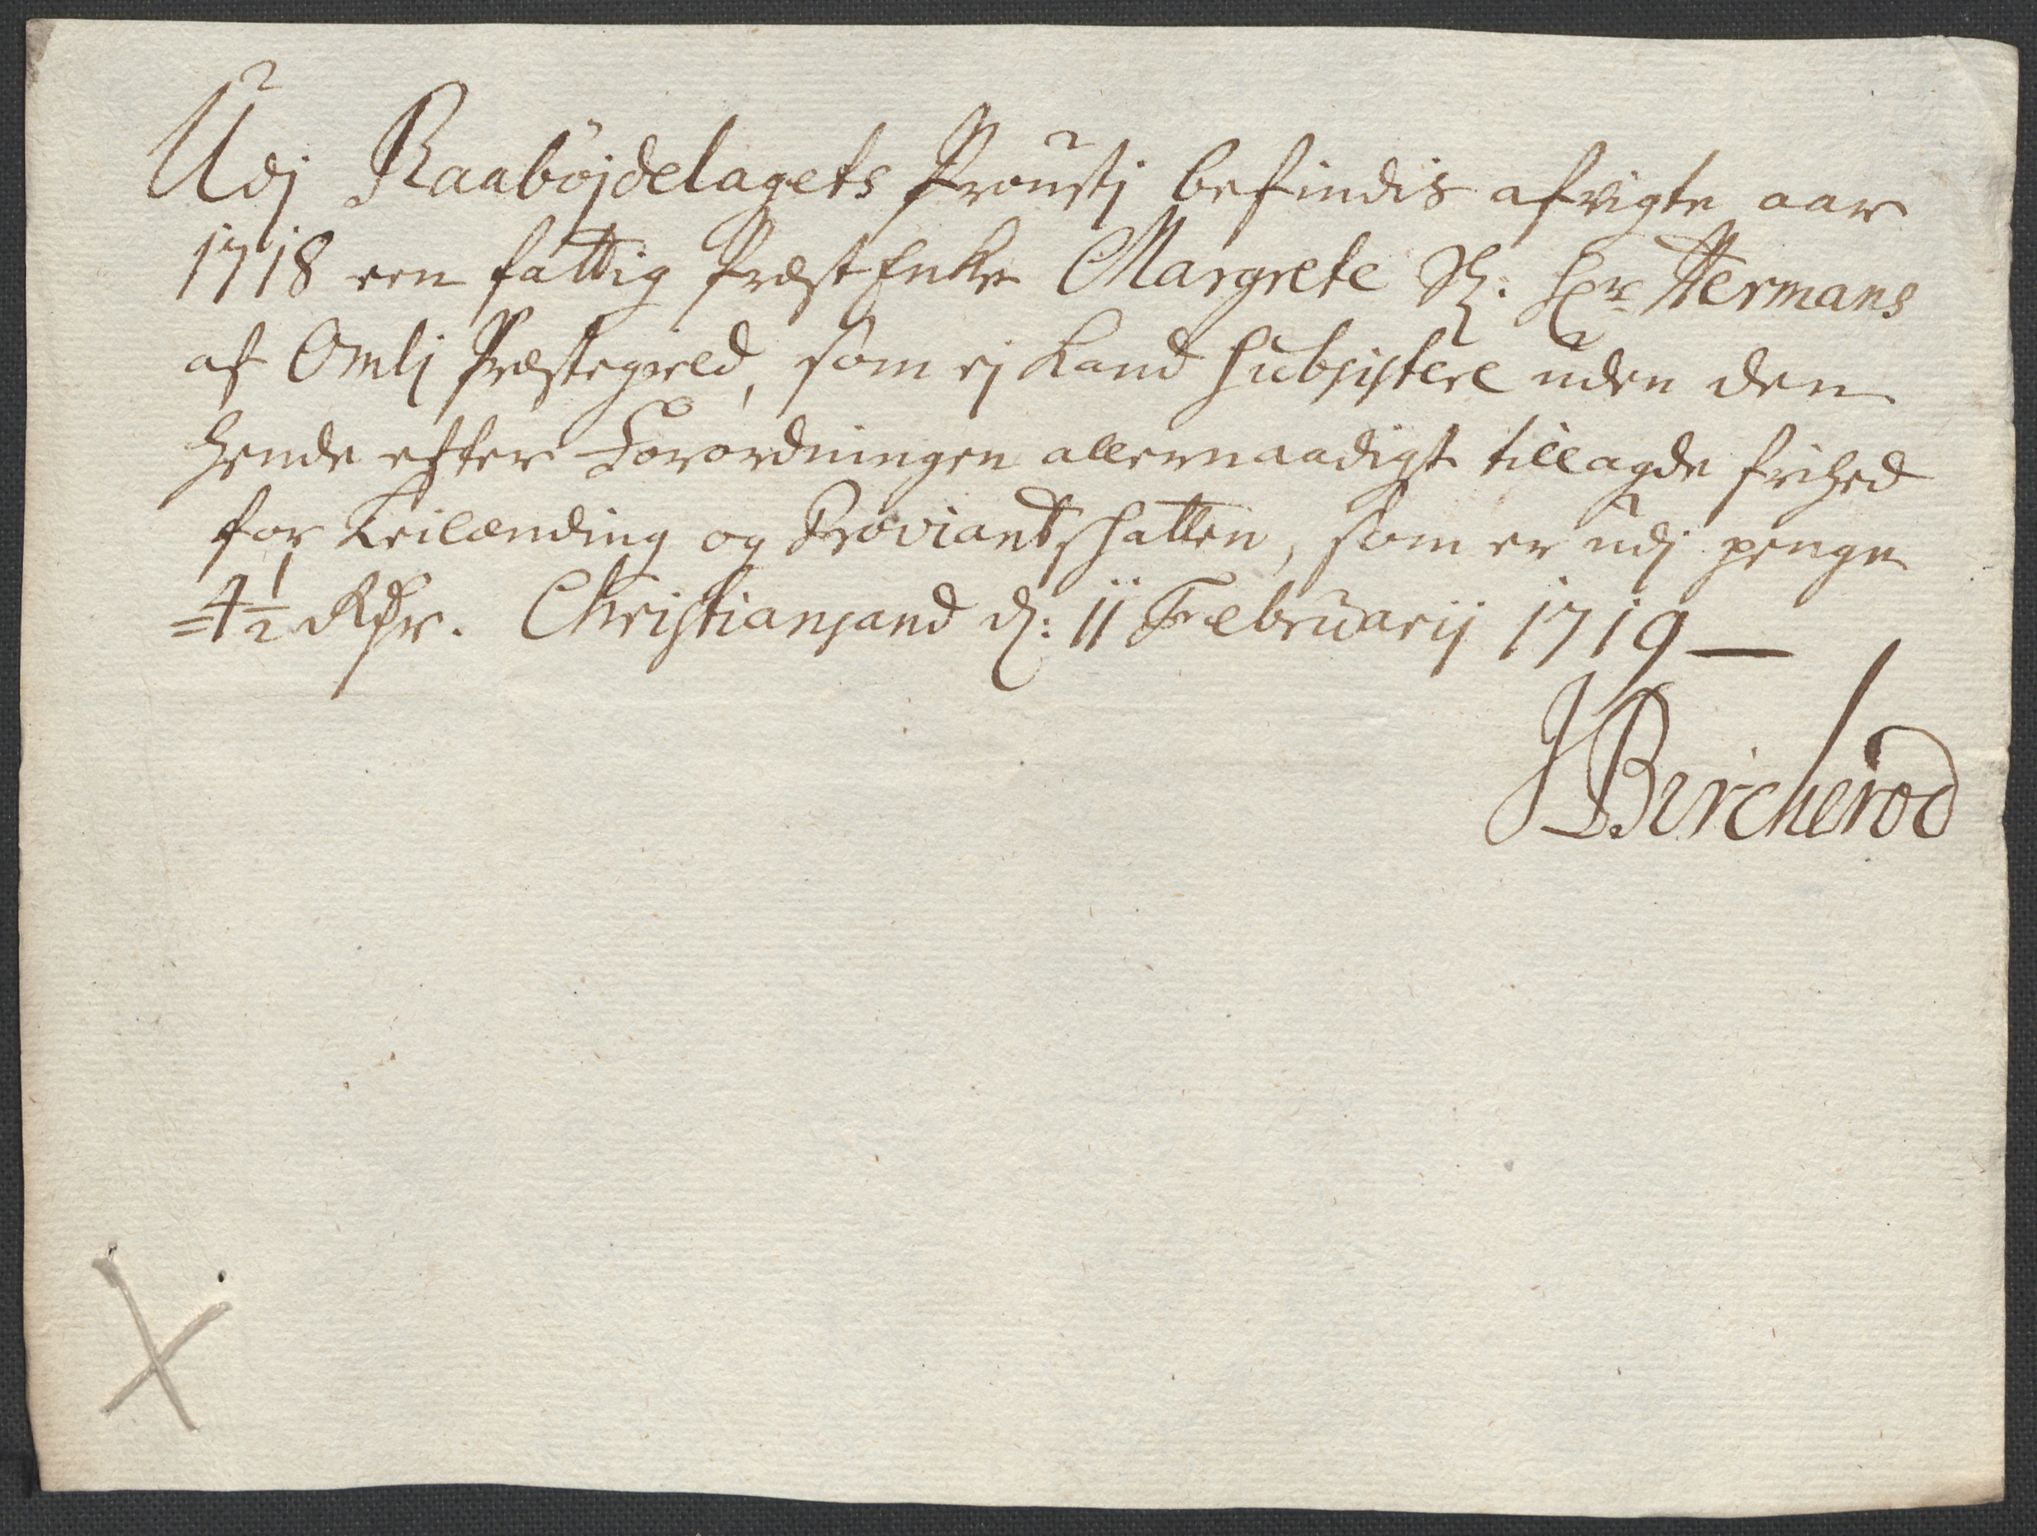 Udj Raabøjdelagets Proustj befindis afvigte aar
1718 een fattig Præst Enke Margrete Sl: Hr Hermans
af Omlj Præstegield, som ej kand subsistere uden den
hende efter Forordningen allernaadigst tillagde frihed
for Leilænding og Proviantskatten, som er udj penge
4 1/2 Rdr. Christiansand d: 11 Februarij 1719
JBircherod